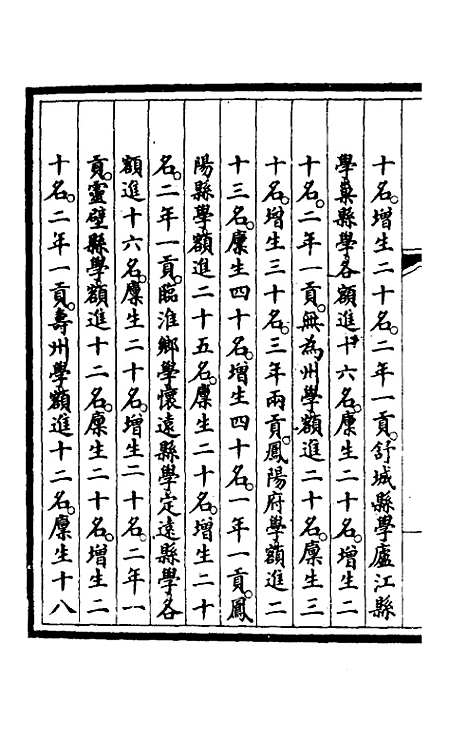 十名。增生二十名。二年一貢。舒城縣學廬江縣
學巢縣學各額進十六名。廩生二十名。增生二
十名。二年一貢。無為州學額進二十名。廩生三
十名。增生三十名。三年兩貢。鳳陽府學額進二
十三名。廩生四十名。增生四十名。一年一貢。鳳
陽縣學額進二十五名。廩生二十名。增生二十
名。二年一貢。臨淮鄉學懷遠縣學定遠縣學各
額進十六名。廩生二十名。增生二十名。二年一
貢。靈壁縣學額進十二名。廩生二十名。增生二
十名。二年一貢。壽州學額進十二名。廩生十八